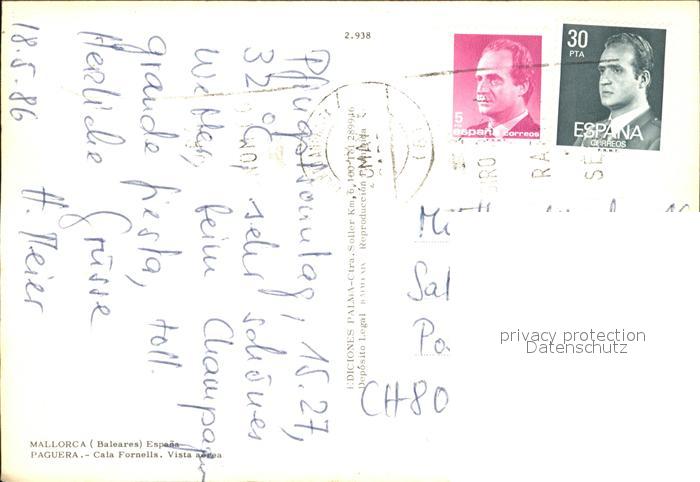 2.938
5
españa correos
30
PTA
ESPAÑA
CORREOS
F.N.M.T.
Pfingstsonntag, 15.27,
32°C, sehr schönes
Wetter, beim Champagner
grande fiesta, toll.
Herzliche Grüsse
18.5.86 H. Meier
EDICIONES PALMA-Ctra. Soller Km, 6,
Depósito Legal Reproducción
Sal
CH80
privacy protection
Datenschutz
MALLORCA (Baleares) España
PAGUERA.- Cala Fornells. Vista aérea